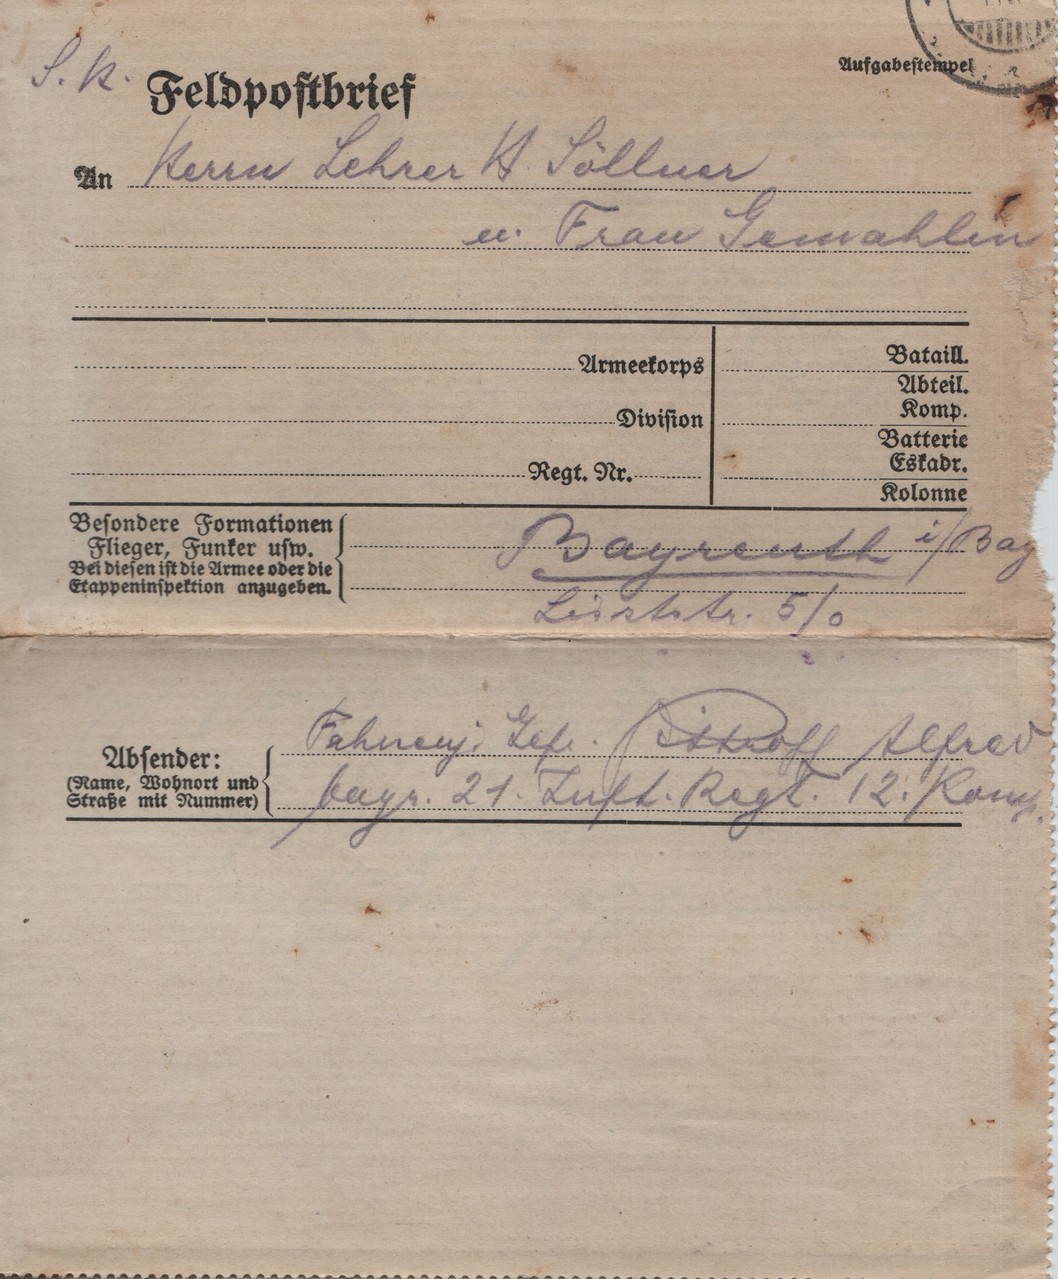 S. k.
Feldpostbrief
Aufgabestempel
An Herrn Lehrer H. Söllner
u. Frau Gemahlin
Armeekorps
Division
Regt. Nr.
Bataill.
Abteil.
Komp.
Batterie
Eskadr.
Kolonne
Besondere Formationen
Flieger, Funker usw.
Bei diesen ist die Armee oder die
Etappeninspektion anzugeben.
Bayreuth i/Bay
Lisztstr. 5/0
Absender:
(Name, Wohnort und
Straße mit Nummer)
Fahnenj. Gefr. Alfred
bayr. 21. Inft. Regt. 12. Komp.